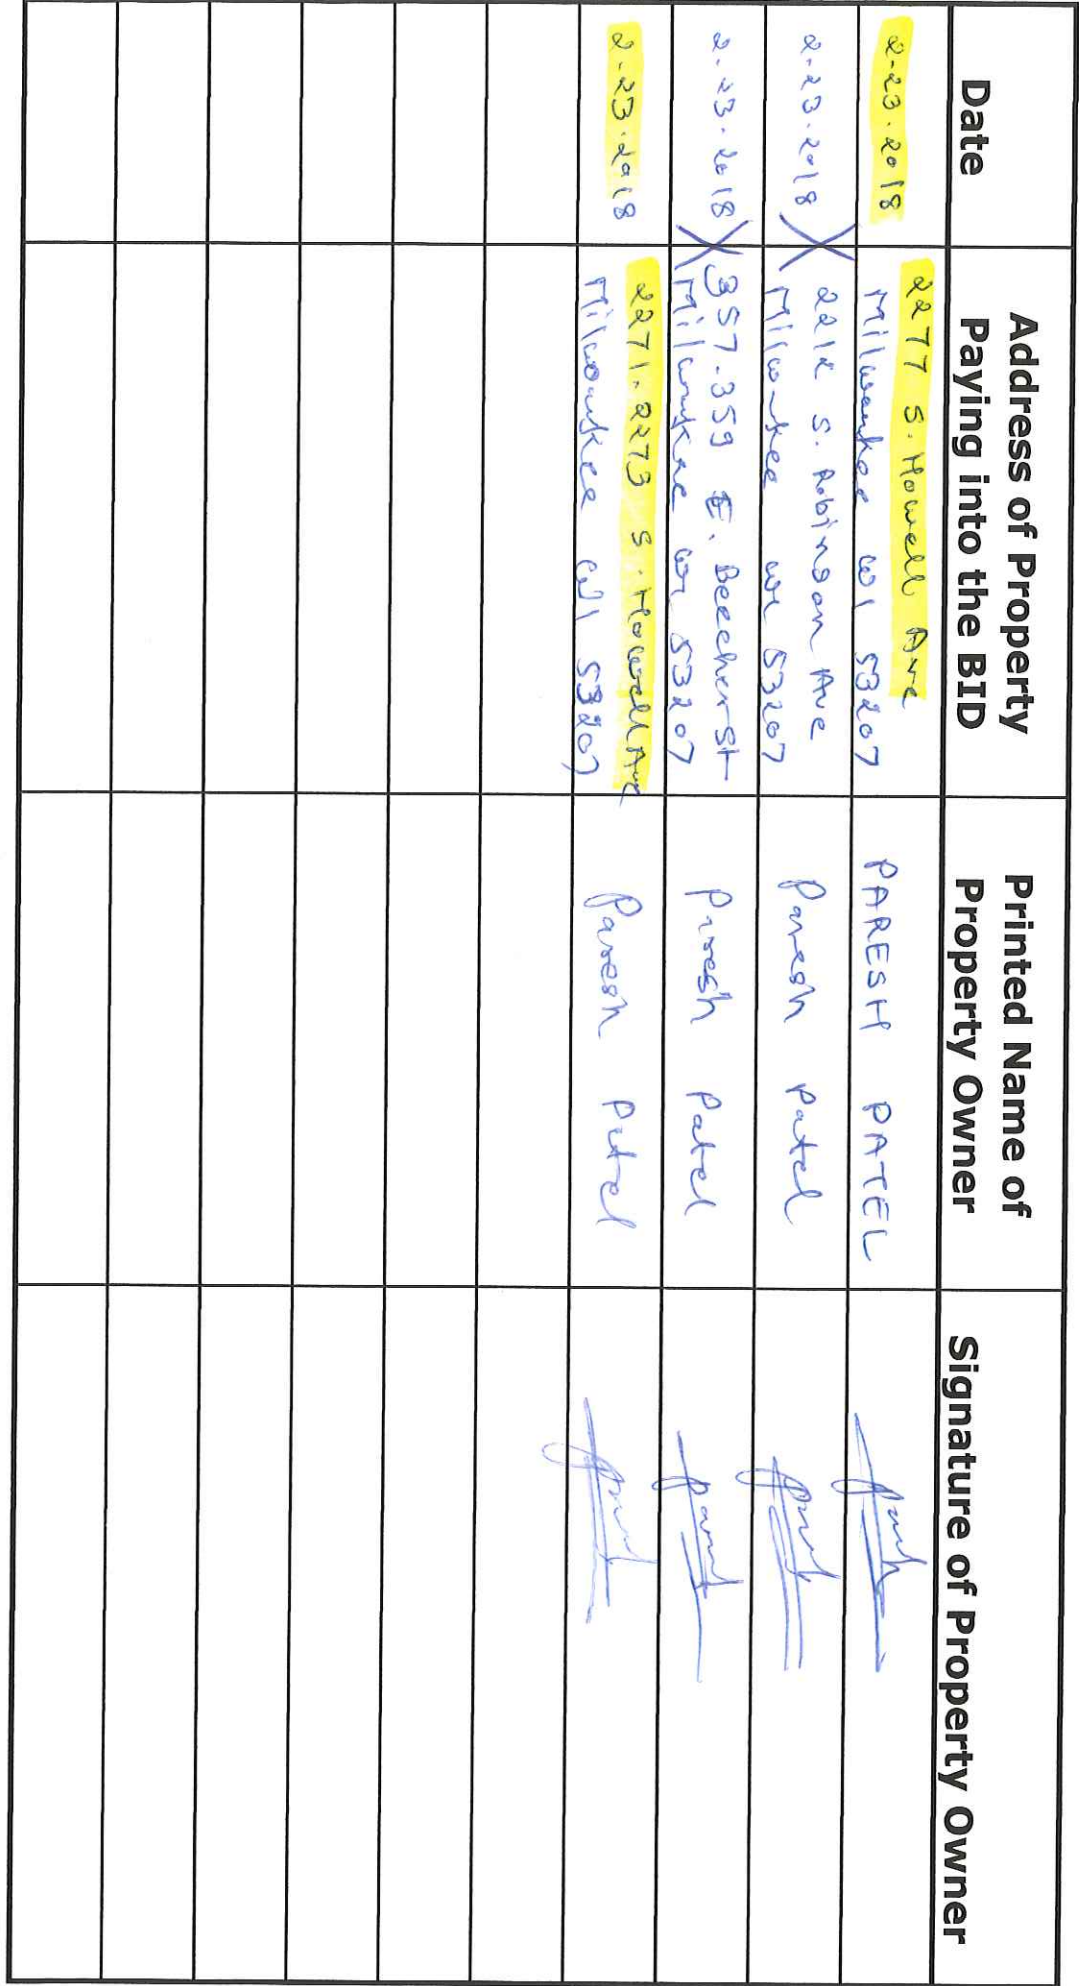 Date
Address of Property
Paying into the BID
Printed Name of
Property Owner
Signature of Property Owner
2-23-2018
2277 S. Howell Ave
Milwaukee WI 53207
PARESH PATEL
2-23-2018 X
2212 S. Robinson Ave
Milwaukee WI 53207
Paresh Patel
2-23-2018 X
357-359 E. Beecher St
Milwaukee WI 53207
Paresh Patel
2-23-2018
2271-2273 S. Howell Ave
Milwaukee WI 53207
Paresh Patel